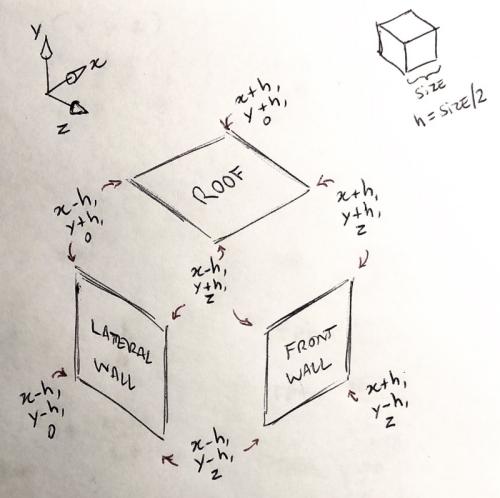 y
x
z
SIZE
h = SIZE/2
x+h,
y+h,
0
ROOF
x-h,
y+h,
0
x+h,
y+h,
z
x-h,
y+h,
z
LATERAL
WALL
FRONT
WALL
x-h,
y-h,
0
x+h,
y-h,
z
x-h,
y-h,
z